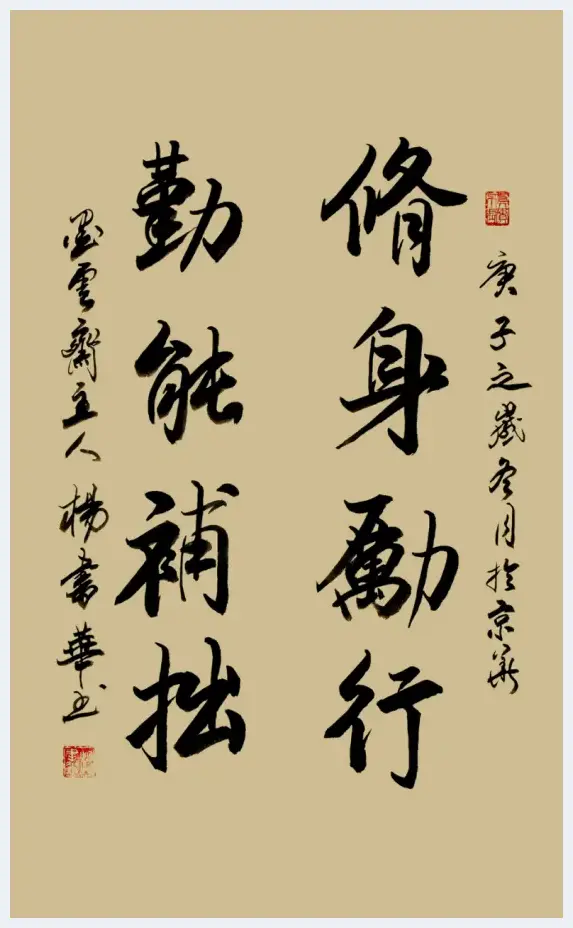 庚子之歲冬月於京華
脩身勵行
勤能補拙
墨雲齋主人楊書華书